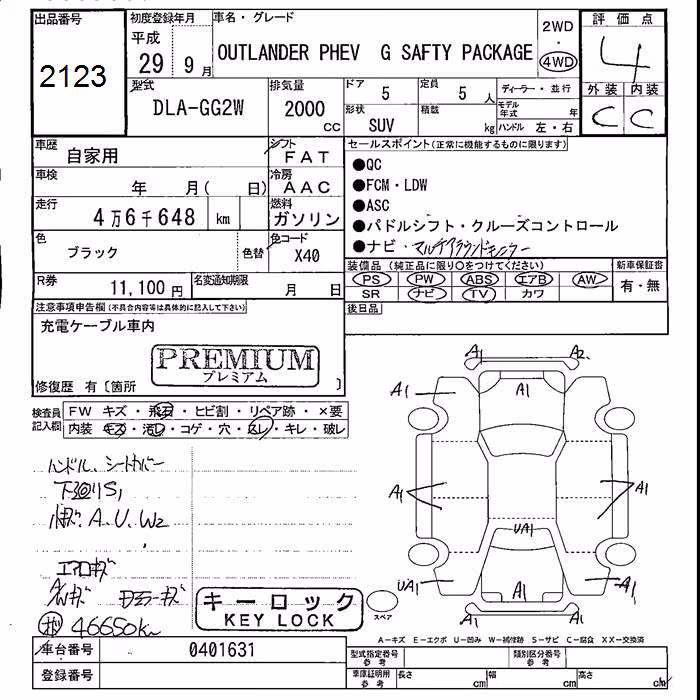 出品番号
2123
初度登録年月
平成
29 9月
車名・グレード
OUTLANDER PHEV G SAFTY PACKAGE
2WD
4WD
評価点
4
外装 内装
C C
型式
DLA-GG2W
排気量
2000
cc
ドア 5
定員 5 人
形状
SUV
積載
kg
ディーラー・並行
モデル年式 年
ハンドル 左・右
車歴
自家用
シフト
FAT
車検
年 月( 日)
冷房
AAC
走行
4万6千648 km
燃料
ガソリン
色
ブラック
色替
色コード
X40
R券
11,100円
名変通知期限
月 日
セールスポイント(正常に機能するものに限ります)
●QC
●FCM・LDW
●ASC
●パドルシフト・クルーズコントロール
●ナビ・マルチアラウンドモニター
装備品(純正品に限り○をつけてください)
PS PW ABS エアB AW
SR ナビ TV カワ
新車保証書
有・無
後日品
注意事項申告欄(不具合内容等は具体的に記入して下さい)
充電ケーブル車内
PREMIUM
プレミアム
修復歴 有〔箇所 〕
検査員
記入欄
FW キズ・飛石・ヒビ割・リペア跡・×要
内装 キズ・汚レ・コゲ・穴・スレ・キレ・破レ
ハンドル、シートカバー
下廻りS,
小キズ.A.U.W2
エアロキズ
A/Wキズ ドアミラーキズ
46650km
キーロック
KEY LOCK
A1 A2
A1 A1
A1 A1
UA1
UA1 A1 A1
スペア
A-キズ E-エクボ U-凹み W-補修跡 S-サビ C-腐食 XX-交換済
車台番号
0401631
登録番号
型式指定番号
参考
類別区分番号
参考
車庫証明用
参考
長さ cm
幅 cm
高さ cm